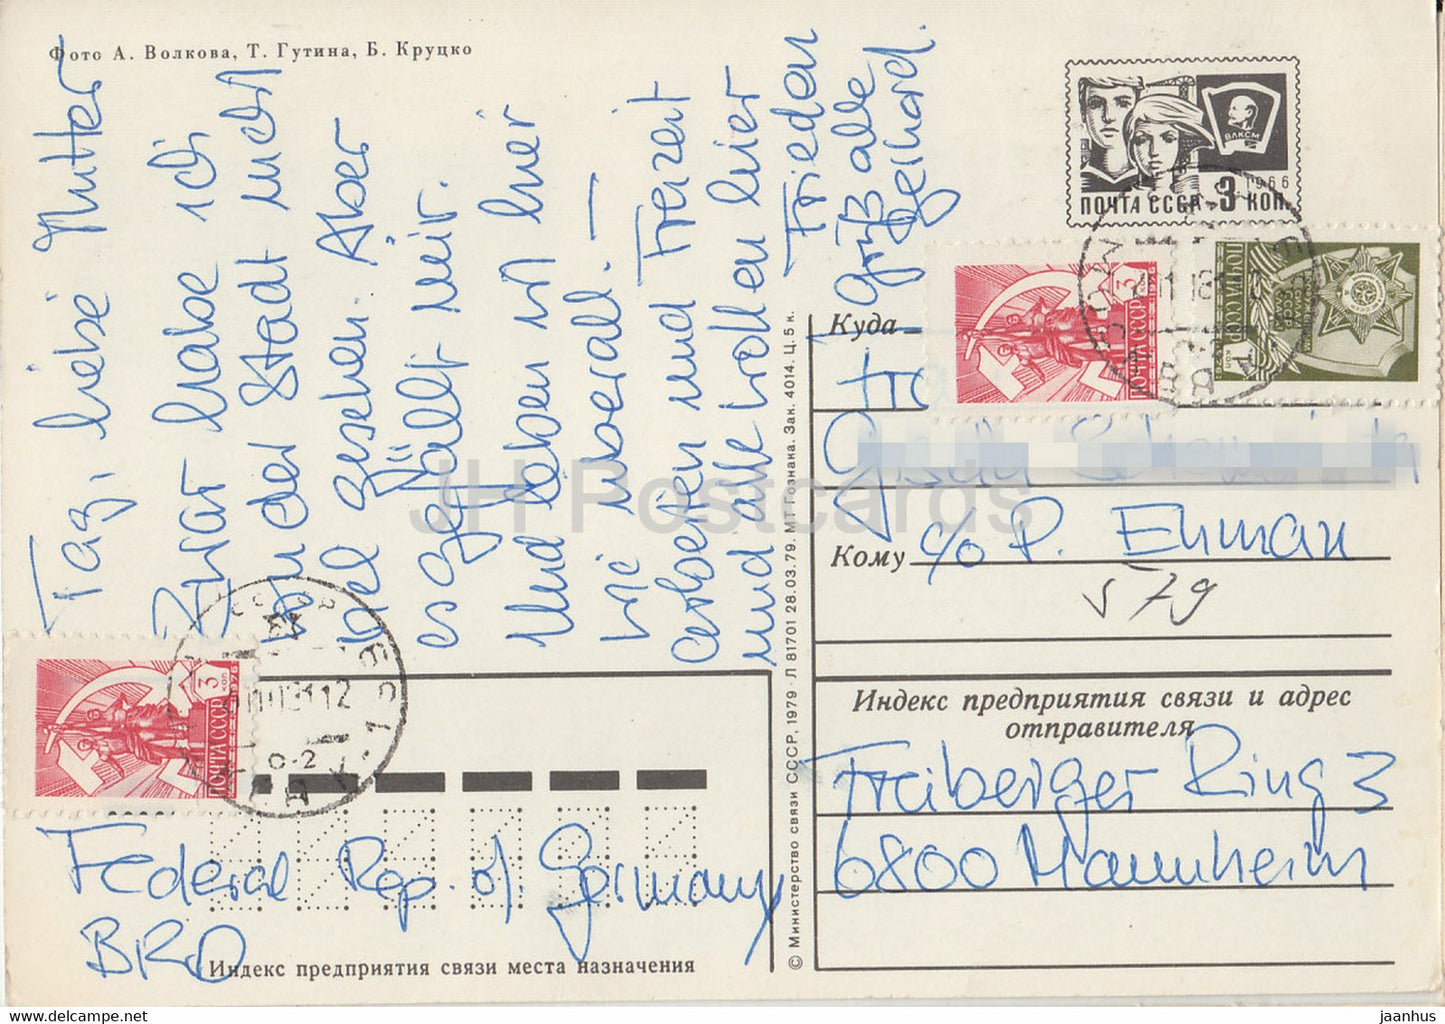 Фото А. Волкова, Т. Гутина, Б. Круцко
Tag, liebe Mutter
Zwar habe ich
von der Stadt nicht
viel gesehen. Aber
es gefällt mir.
Und leben ist hier
wie überall. —
arbeiten und Freizeit
und alle wollen hier
Frieden
Grüß alle
Gerhard.
ВЛКСМ
1966
ПОЧТА СССР 3 КОП.
ПОЧТА СССР 3 КОП 1976
ПОЧТА СССР
Куда
Gisela
Кому c/o P. Ehman
579
Индекс предприятия связи и адрес
отправителя
Freiberger Ring 3
6800 Mannheim
ПОЧТА СССР 3 КОП 1976
Federal Rep. of. Germany
BRD
Индекс предприятия связи места назначения
© Министерство связи СССР, 1979 · Л 81701 28.03.79. МТ Гознака. Зак. 4014. Ц. 5 к.
JH Postcards
https://www.delcampe.net/
jaanhus